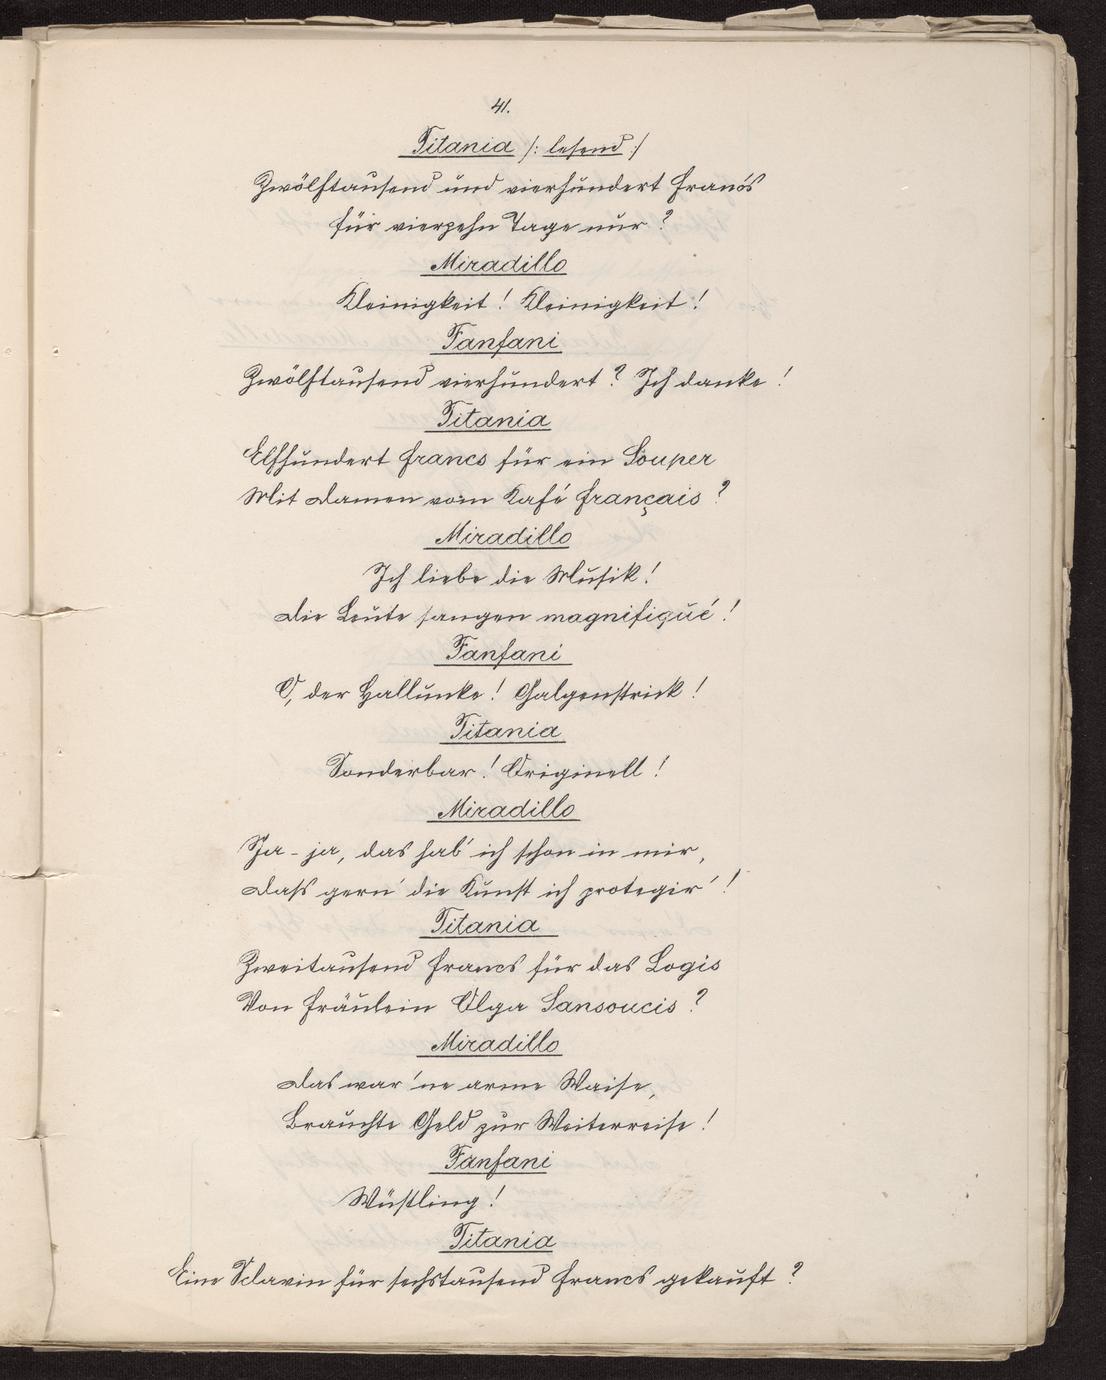 41.
Titania /: lesend :/
Zwölftausend und vierhundert Francs
für vierzehn Tage nur?
Miradillo
Kleinigkeit! Kleinigkeit!
Fanfani
Zwölftausend vierhundert? Ich danke!
Titania
Elfhundert Francs für ein Souper
Mit Damen vom Kafé français?
Miradillo
Ich liebe die Musik!
Die Leute sangen magnifique!
Fanfani
O, der Hallunke! Galgenstrick!
Titania
Sonderbar! Originell!
Miradillo
Ja - ja, das hab' ich schon in mir,
Daß gern' die Kunst ich protegir'!
Titania
Zweitausend Francs für das Logis
Von Fräulein Olga Sansoucis?
Miradillo
Das war 'ne arme Waise,
Brauchte Geld zur Weiterreise!
Fanfani
Wüstling!
Titania
Eine Sclavin für sechstausend Francs gekauft?